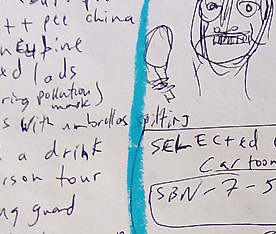 ++ pee china
ed lads
ring pollution
mark)
s with umbrellas spitting
a drink
rson tour
ng guard
SELECTED
Cartoon
SBN-7-5